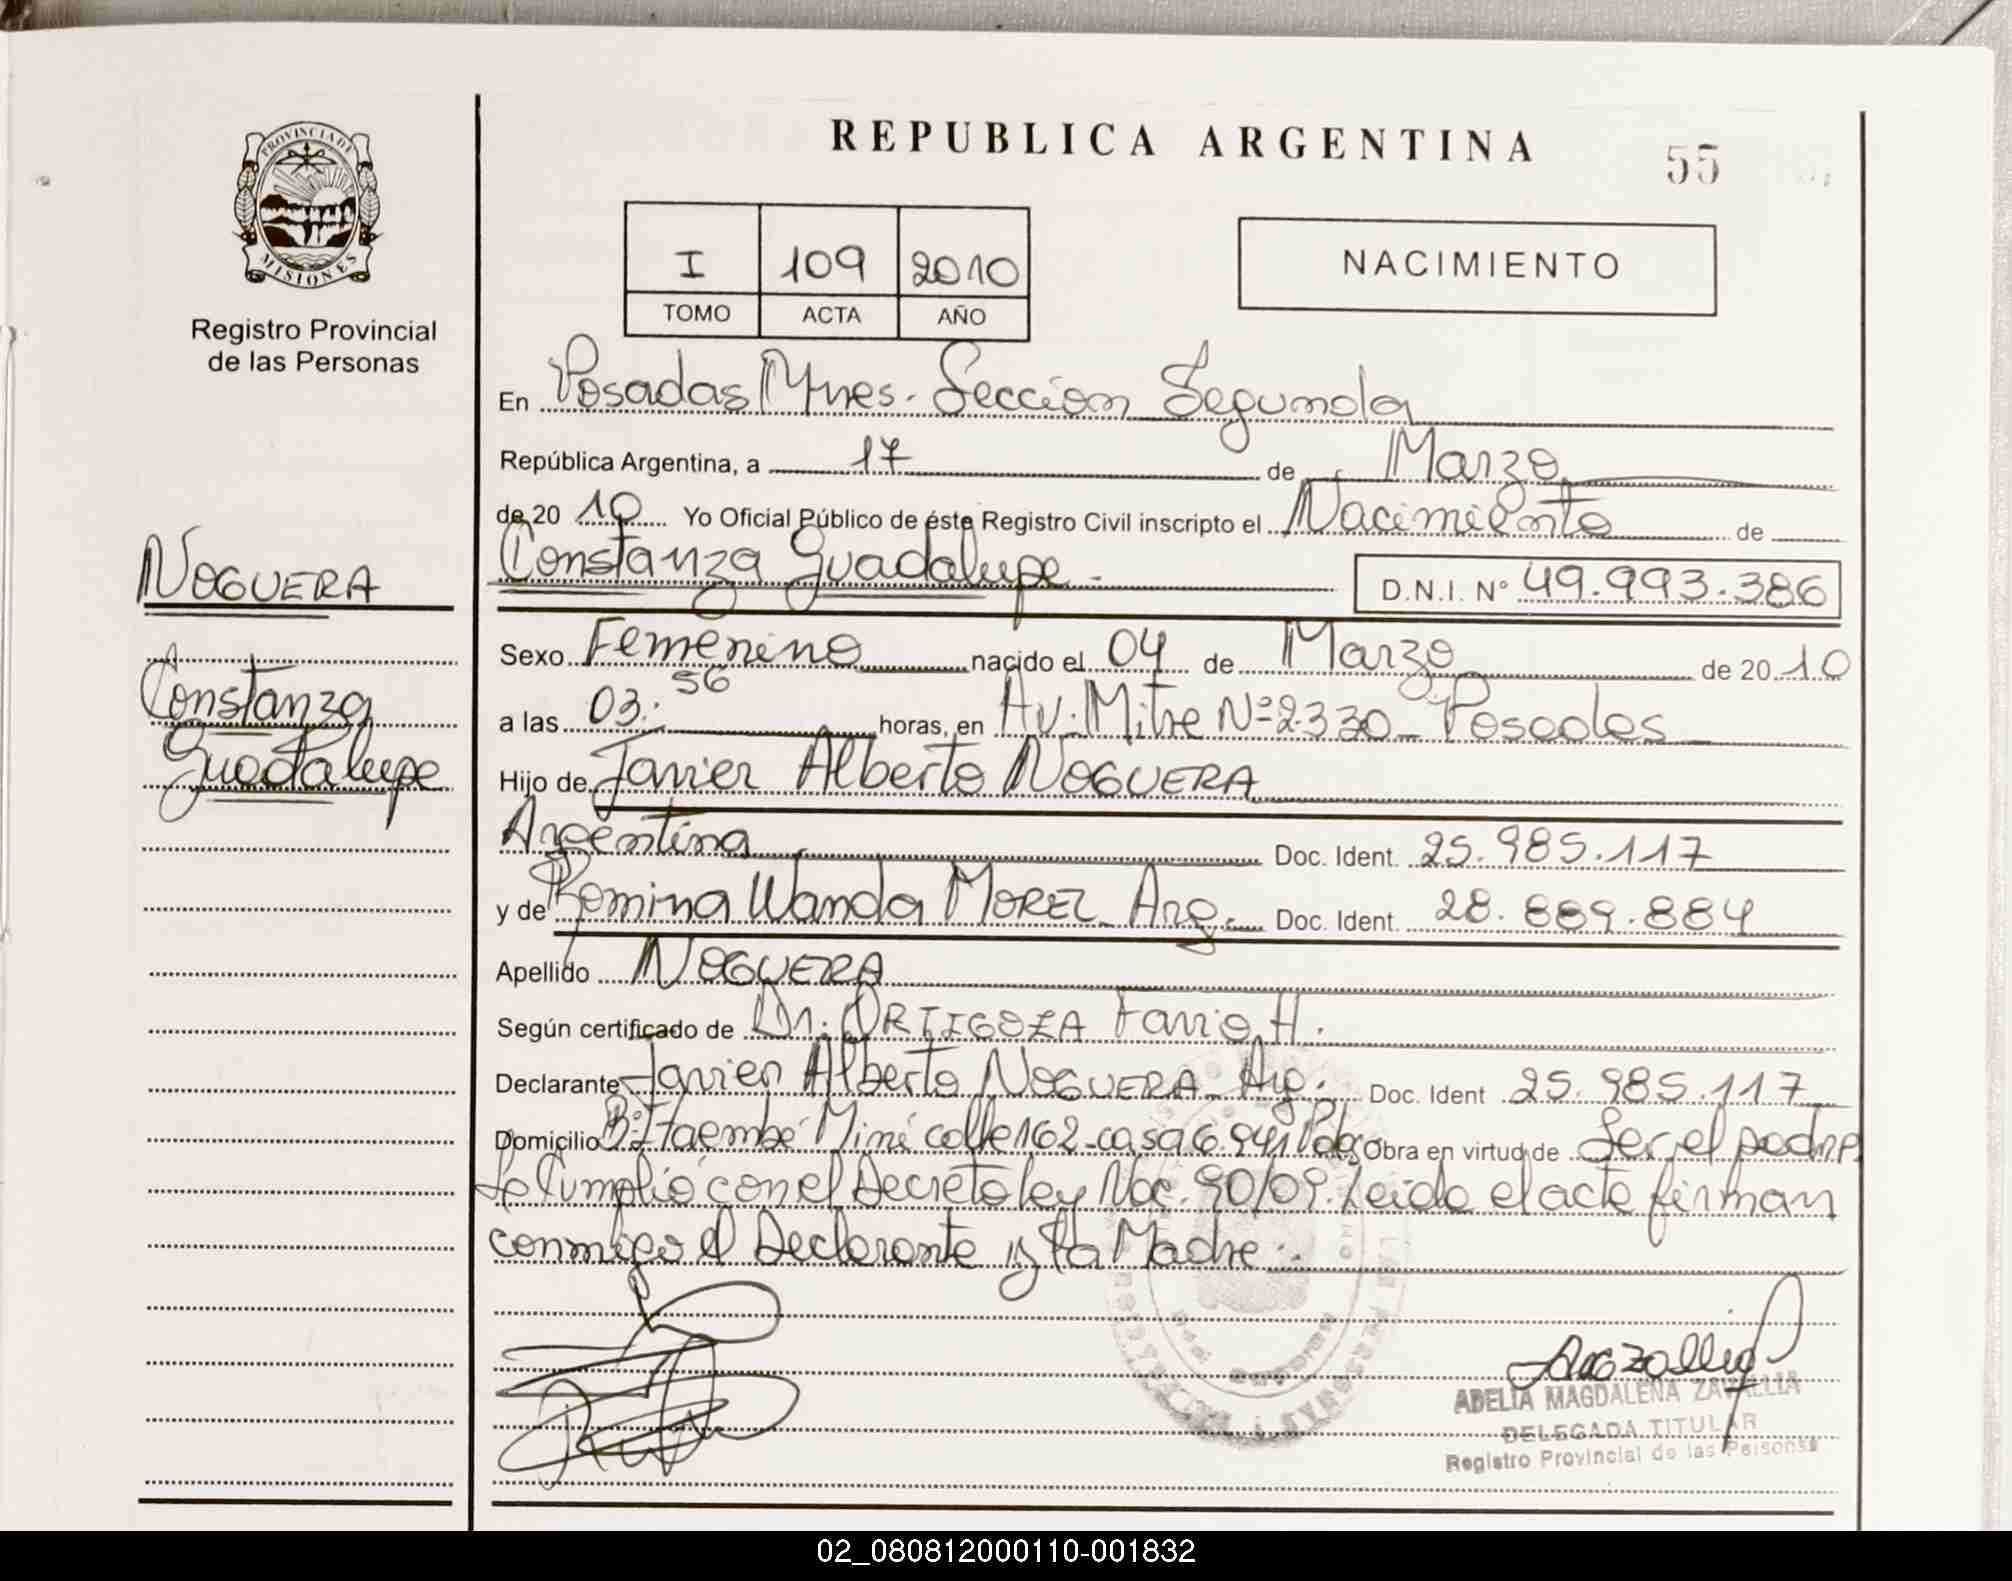 REPUBLICA ARGENTINA
55
PROVINCIA DE
MISIONES
Registro Provincial
de las Personas
I 109 2010
TOMO ACTA AÑO
NACIMIENTO
En Posadas Mnes. Seccion Segunda
República Argentina, a 17 de Marzo
de 20 10 Yo Oficial Público de éste Registro Civil inscripto el Nacimiento de
Constanza Guadalupe.-
D.N.I. N° 49.993.386
NOGUERA
Constanza
Guadalupe
Sexo Femenino nacido el 04 de Marzo de 20 10
a las 03:56 horas, en Av. Mitre Nº 2330 - Posadas
Hijo de Javier Alberto NOGUERA
Argentina Doc. Ident. 25.985.117
y de Romina Wanda MOREZ - Arg. Doc. Ident. 28.889.884
Apellido NOGUERA
Según certificado de Dr. ORTIGOZA Favio H.
Declarante Javier Alberto NOGUERA - Arg. Doc. Ident 25.985.117
Domicilio Bº Itaembé Miní calle 162 - casa 6.941 Pdas Obra en virtud de Ser el padre
Se Cumplió con el Decreto ley Nac. 90/09. Leida el acta firman
conmigo el Declarante y la Madre.-
ADELIA MAGDALENA
DELEGADA TITULAR
Registro Provincial de las Personas
02_080812000110-001832